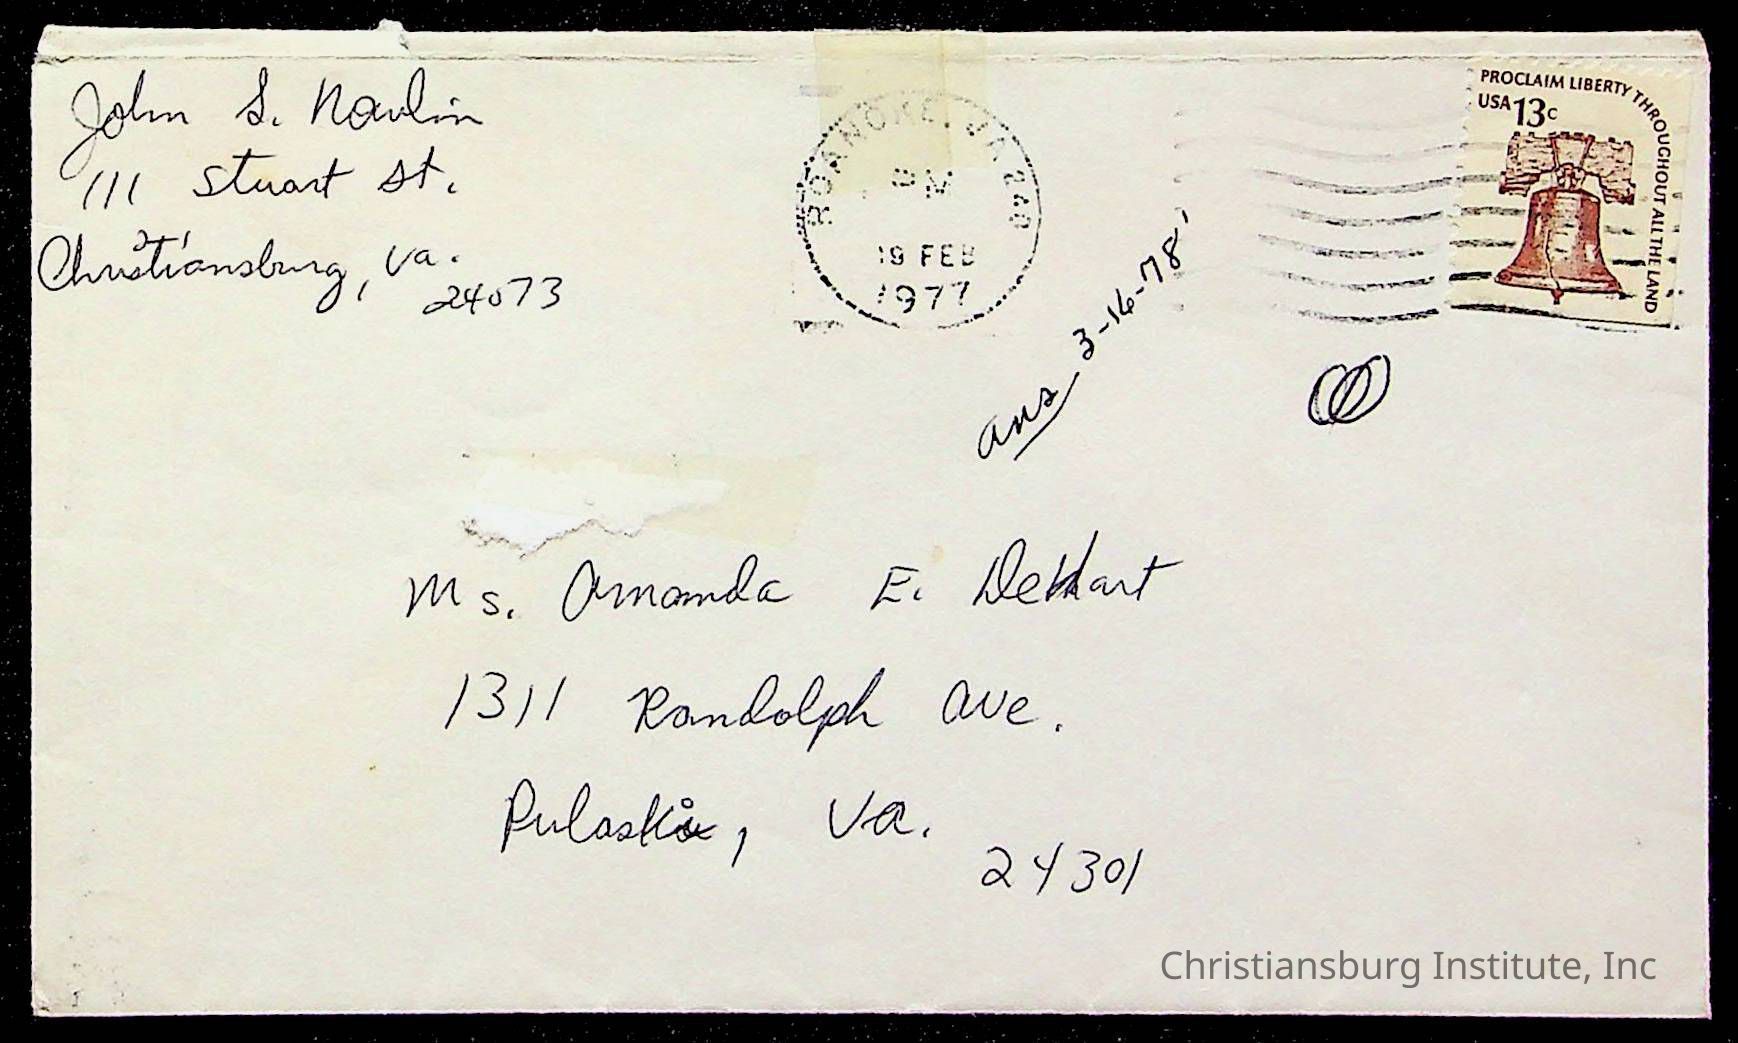 John S. Nowlin
111 Stuart St.
Christiansburg, Va.
24073
ROANOKE, VA 240
PM
19 FEB
1977
PROCLAIM LIBERTY THROUGHOUT ALL THE LAND
USA 13c
ans 3-14-78'
Ms. Amanda E. DeHart
1311 Randolph Ave.
Pulaski, Va.
24301
Christiansburg Institute, Inc